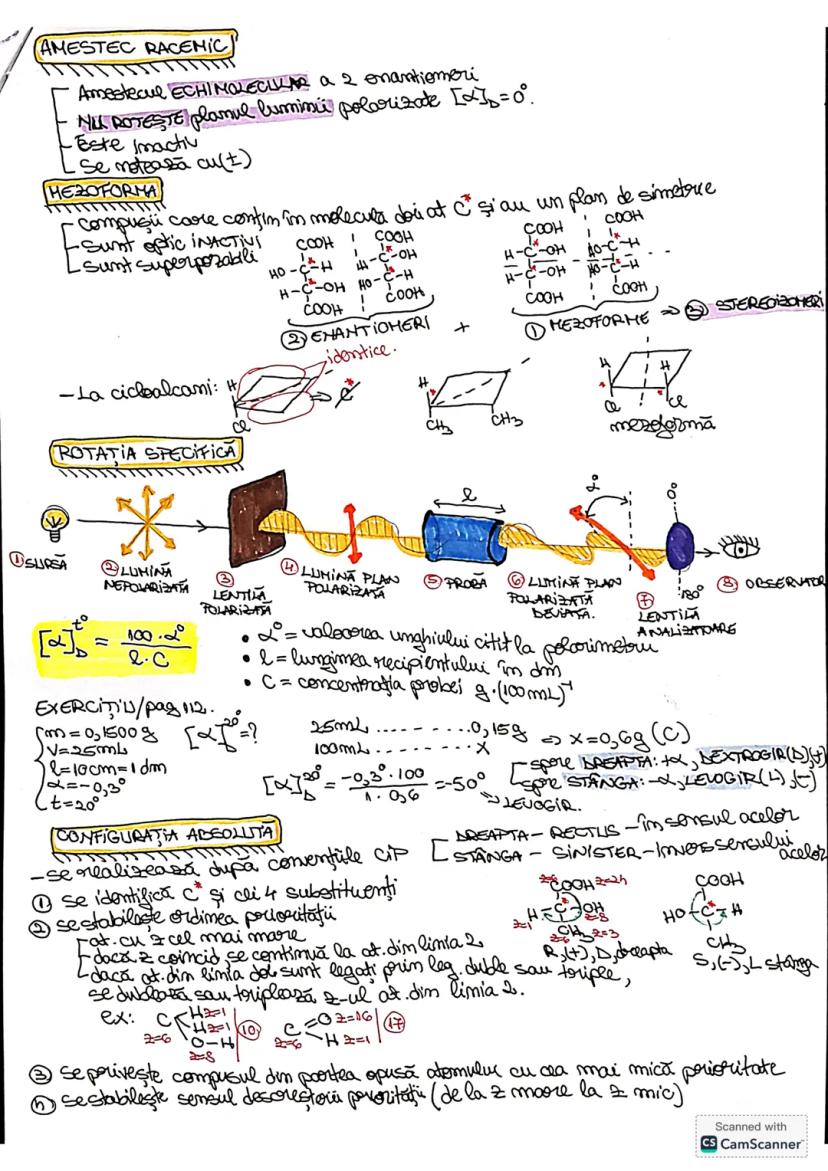 AMESTEC RACEMIC
Amestecul ECHIMOLECULAR a 2 enantiomeri
NU ROTEȘTE planul luminii polarizate [α]D = 0°.
Este inactiv
Se notează cu (±)
MEZOFORMA
Compușii care conțin în moleculă doi at C* și au un plan de simetrie
Sunt optic INACTIVI
Sunt superpozabili
COOH COOH COOH COOH
HO-C*-H H-C*-OH H-C*-OH HO-C*-H
H-C*-OH HO-C*-H H-C*-OH HO-C*-H
COOH COOH COOH COOH
② ENANTIOMERI + ① MEZOFORME ⇒ ③ STEREOIZOMERI
identice.
- La cicloalcani: H Cl ⇒ C* H CH3 CH3 H H Cl Cl
mezoformă
ROTAȚIA SPECIFICĂ
l α° 0°
① SURSĂ
② LUMINĂ NEPOLARIZATĂ
③ LENTILĂ POLARIZATĂ
④ LUMINĂ PLAN POLARIZATĂ
⑤ PROBĂ
⑥ LUMINĂ PLAN POLARIZATĂ DEVIATĂ.
⑦ LENTILĂ ANALIZATOARE
180°
⑧ OBSERVATOR
[α]D t° = 100·α° / l·C
• α° = valoarea unghiului citit la polarimetru
• l = lungimea recipientului în dm
• C = concentrația probei g·(100mL)⁻¹
EXERCIȚIU/pag 112.
m = 0,1500 g [α]D 20° = ?
V = 25mL
l = 10cm = 1 dm
α = -0,3°
t = 20°
25mL ........... 0,15g ⇒ x = 0,6g (C)
100mL ........... x
[α]D 20° = -0,3°·100 / 1·0,6 = -50°
⇒ LEVOGIR.
spre DREAPTA: +α, DEXTROGIR(D),(+)
spre STÂNGA: -α, LEVOGIR(L),(-)
CONFIGURAȚIA ABSOLUTĂ
DREAPTA - RECTUS - în sensul acelor
STÂNGA - SINISTER - invers sensului acelor
- se realizează după convențiile CIP
① se identifică C* și cei 4 substituenți
② se stabilește ordinea priorității
at. cu z cel mai mare
dacă z coincid se continuă la at. din linia 2
dacă at. din linia doi sunt legați prin leg. duble sau triple,
se dublează sau triplează z-ul at. din linia 2.
z=6 COOH z=24
z=1 H-C*-OH z=8
z=6 CH3 z=3
R,(+), D, dreapta
COOH
HO-C*-H
CH3
S,(-), L stânga
ex: C z=6 H z=1 H z=1 O-H z=8 ⑩ C z=6 O z=16 H z=1 ⑰
③ se privește compusul din partea opusă atomului cu cea mai mică prioritate
④ se stabilește sensul descreșterii priorității (de la z mare la z mic)
Scanned with
CS CamScanner